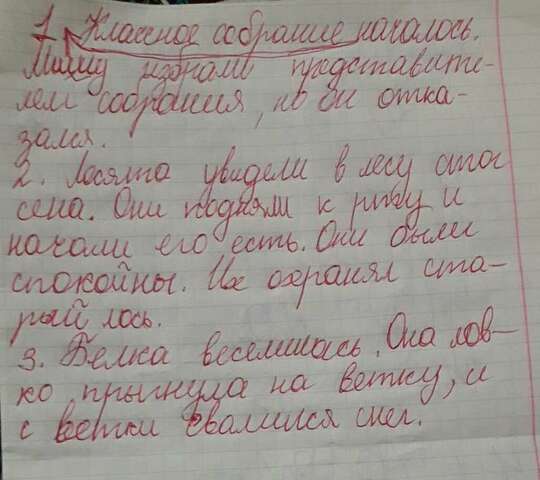 1. Классное собрание началось.
Мишу избрали представите-
лем собрания, но он отка-
зался.
2. Лосята увидели в лесу стог
сена. Они подняли к рту и
начали его есть. Они были
спокойны. Их охранял ста-
рый лось.
3. Белка веселилась. Она лов-
ко прыгнула на ветку, и
с ветки свалился снег.